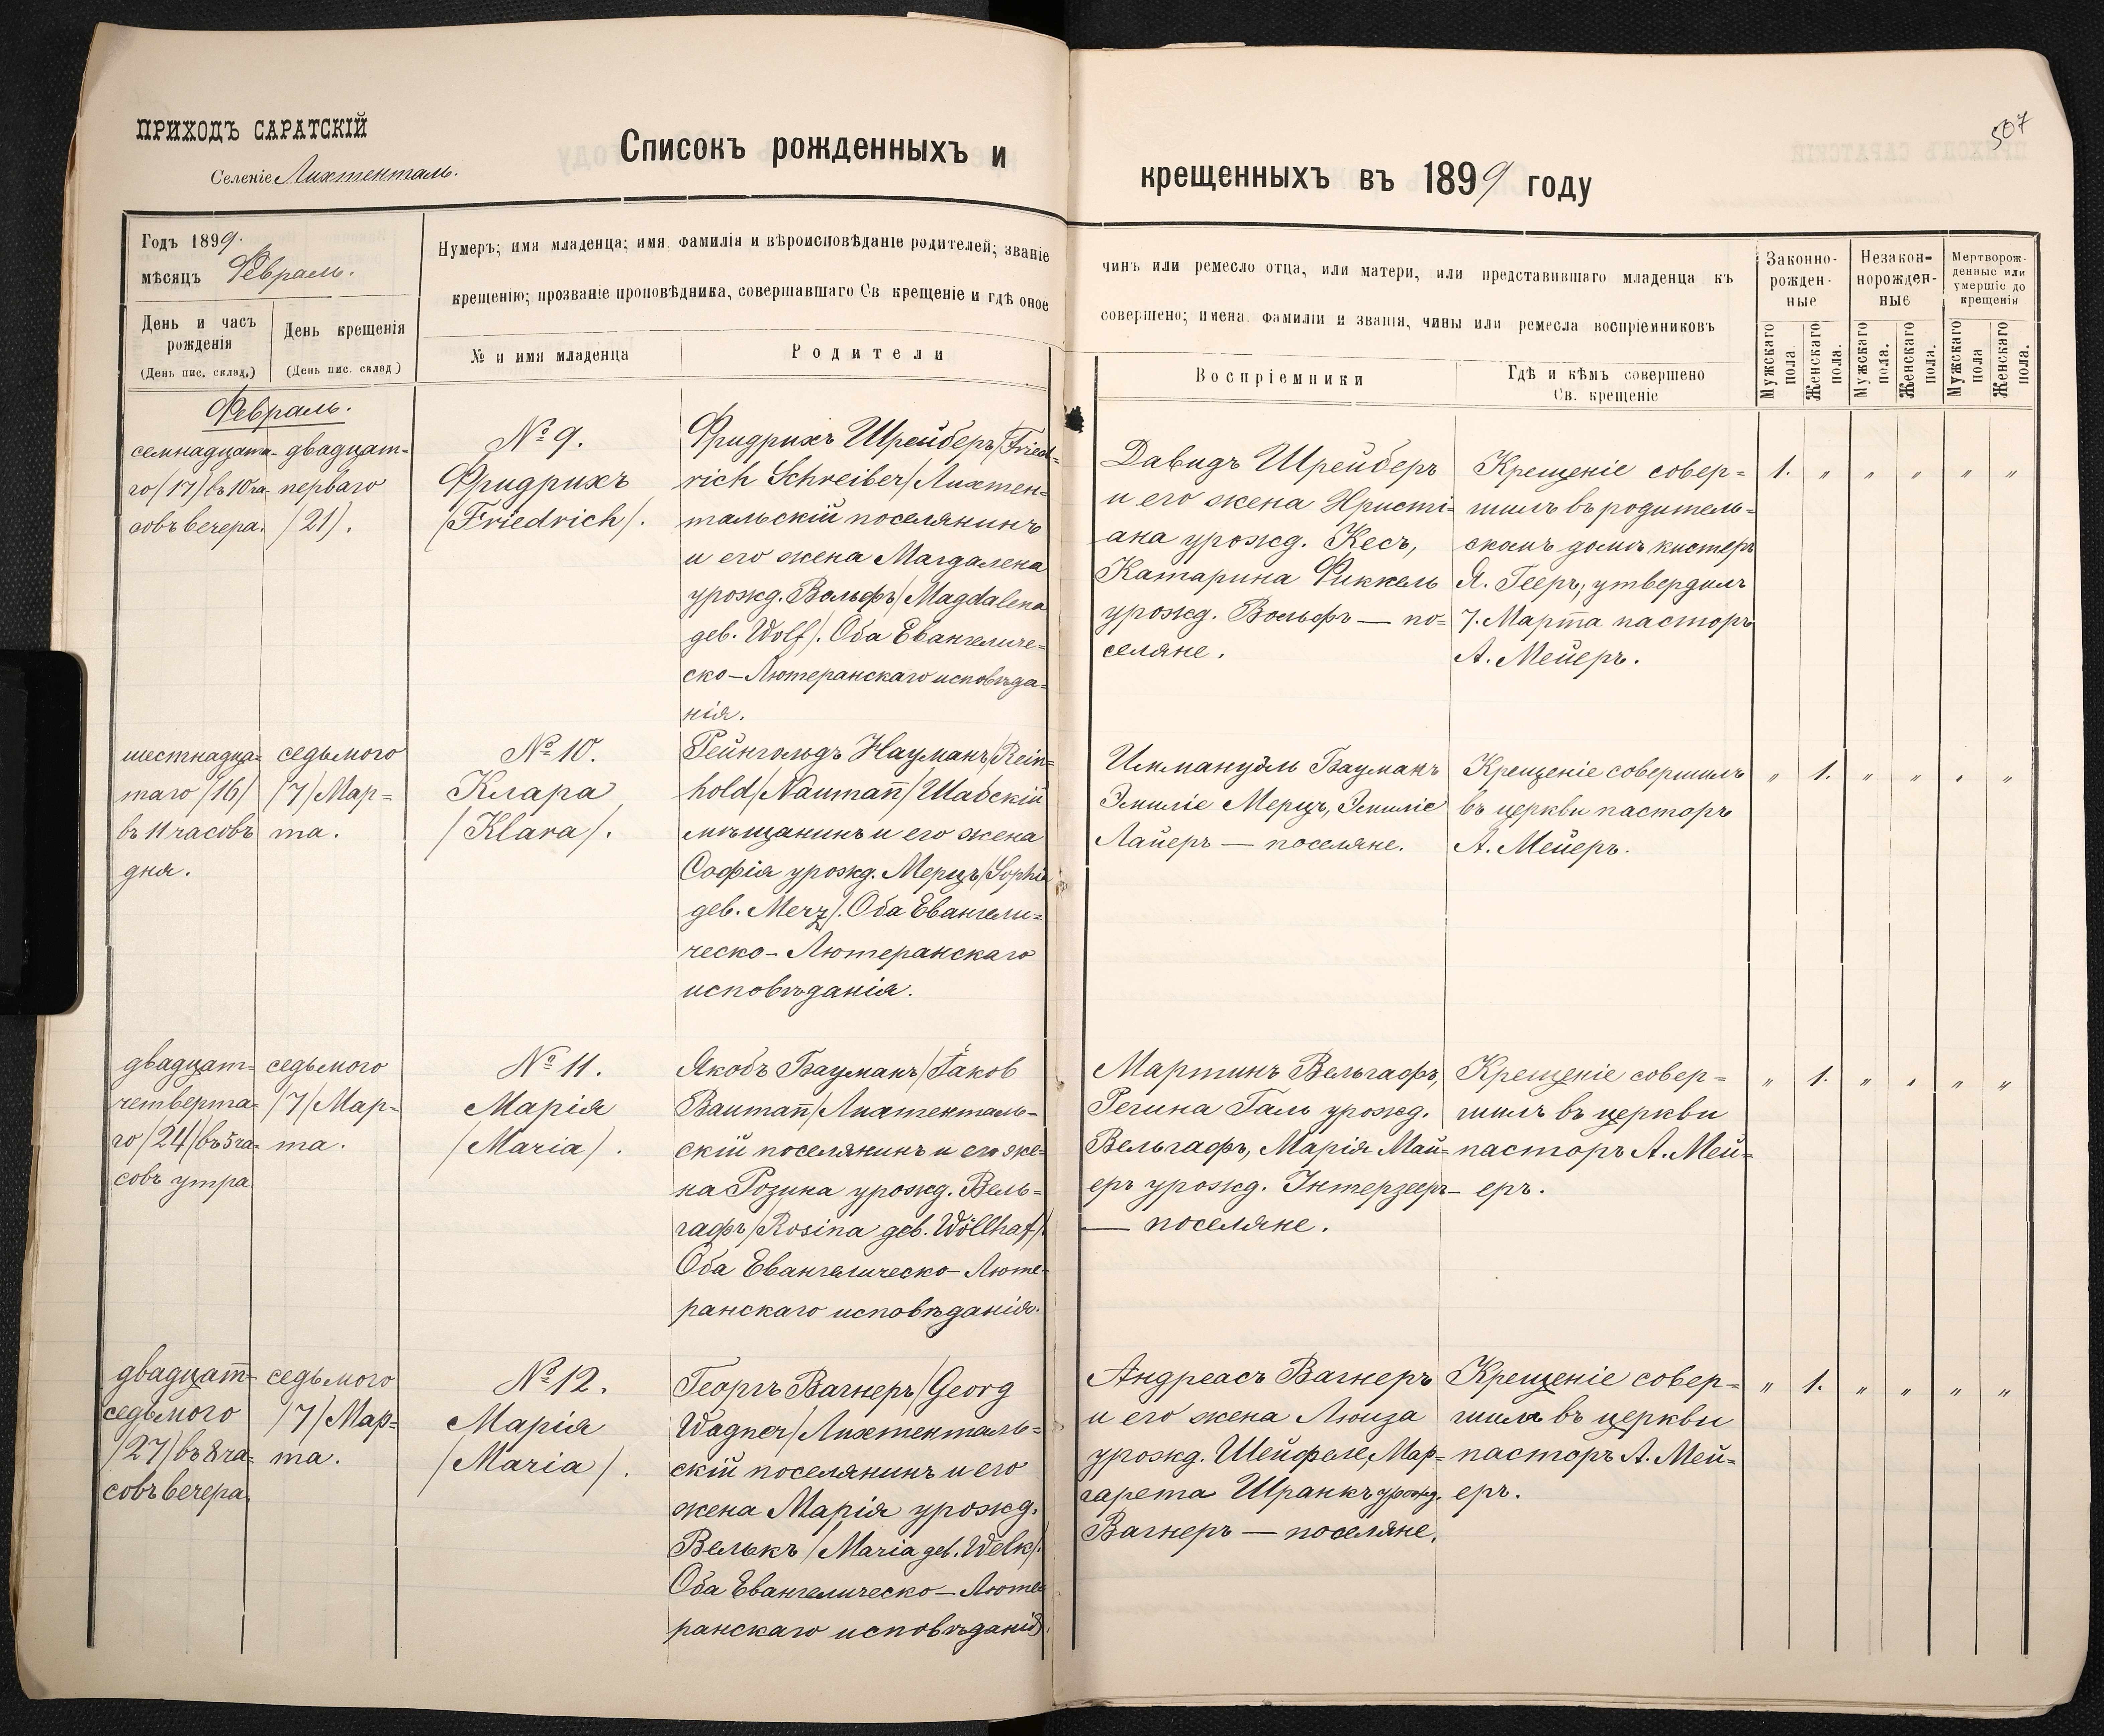 507
ПРИХОДЪ САРАТСКІЙ
Селеніе Лихтенталь.
Списокъ рожденныхъ и
крещенныхъ въ 1899 году
Годъ 1899.
мѣсяцъ Февраль.
День и часъ рожденія
(День пис. склад.)
День крещенія
(День пис. склад)
Нумеръ; имя младенца; имя, фамилія и вѣроисповѣданіе родителей; званіе
крещенію; прозваніе проповѣдника, совершавшаго Св крещеніе и гдѣ оное
№ и имя младенца
Родители
чинъ или ремесло отца, или матери, или представившаго младенца къ
совершено; имена, фамиліи и званія, чины или ремесла воспріемниковъ
Воспріемники
Гдѣ и кѣмъ совершено
Св. крещеніе
Законно-
рожден-
ные
Незакон-
норожден-
ные
Мертворож-
денные или
умершіе до
крещенія
Мужскаго пола
Женскаго пола.
Мужскаго пола.
Женскаго пола.
Мужскаго пола
Женскаго пола.
Февраль.
семнадцата-
го /17/ въ 10 ча-
совъ вечера.
двадцать
перваго
/21/.
№ 9.
Фридрихъ
/Friedrich/.
Фридрихъ Шрейберъ /Fried-
rich Schreiber/ Лихтен-
тальскій поселянинъ
и его жена Магдалена
урожд. Вольфъ /Magdalena
geb. Wolf/. Оба Евангеличе-
ско-Лютеранскаго исповѣда-
нія.
Давидъ Шрейберъ
и его жена Христі-
ана урожд. Кесъ,
Катарина Фиккель
урожд. Вольфъ — по-
селяне.
Крещеніе совер-
шилъ въ родитель-
скомъ домѣ кистеръ
Я. Гееръ; утвердилъ
7. Марта пасторъ
А. Мейеръ.
1. " " " " "
шестнадца-
таго /16/
въ 11 часовъ
дня.
седьмого
/7/ Мар-
та.
№ 10.
Клара
/Klara/.
Рейнгольдъ Науманъ /Rein-
hold Nauman̄/ Шабскій
мѣщанинъ и его жена
Софія урожд. Мерцъ /Sophia
geb. Merz/. Оба Евангели-
ческо-Лютеранскаго
исповѣданія.
Иммануэль Бауманъ
Эмиліе Мерцъ, Эмиліе
Лайеръ — поселяне.
Крещеніе совершилъ
въ церкви пасторъ
А. Мейеръ.
" 1. " " " "
двадцать
четверта-
го /24/ въ 5 ча-
совъ утра
седьмого
/7/ Мар-
та.
№ 11.
Марія
/Maria/.
Якобъ Бауманъ /Jakob
Bauman̄/ Лихтенталь-
скій поселянинъ и его же-
на Розина урожд. Вель-
гафъ /Rosina geb. Wöllhaf/.
Оба Евангелическо-Люте-
ранскаго исповѣданія.
Мартинъ Вельгафъ,
Регина Галь урожд.
Вельгафъ, Марія Май-
еръ урожд. Интерзееръ-
— поселяне.
Крещеніе совер-
шилъ въ церкви
пасторъ А. Мей-
еръ.
" 1. " " " "
двадцать
седьмого
/27/ въ 8 ча-
совъ вечера.
седьмого
/7/ Мар-
та.
№ 12.
Марія
/Maria/.
Георгъ Вагнеръ /Georg
Wagner/ Лихтенталь-
скій поселянинъ и его
жена Марія урожд.
Велькъ /Maria geb. Welk/.
Оба Евангелическо-Люте-
ранскаго исповѣданія.
Андреасъ Вагнеръ
и его жена Люиза
урожд. Шейфеле, Мар-
гарета Шранкъ урожд.
Вагнеръ — поселяне.
Крещеніе совер-
шилъ въ церкви
пасторъ А. Мей-
еръ.
" 1. " " " "